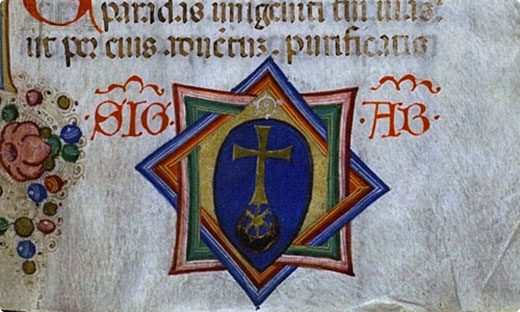 paradas unigeniti tui uias:
ut per eius aduētuz purificatis
·SIG· ·AB·